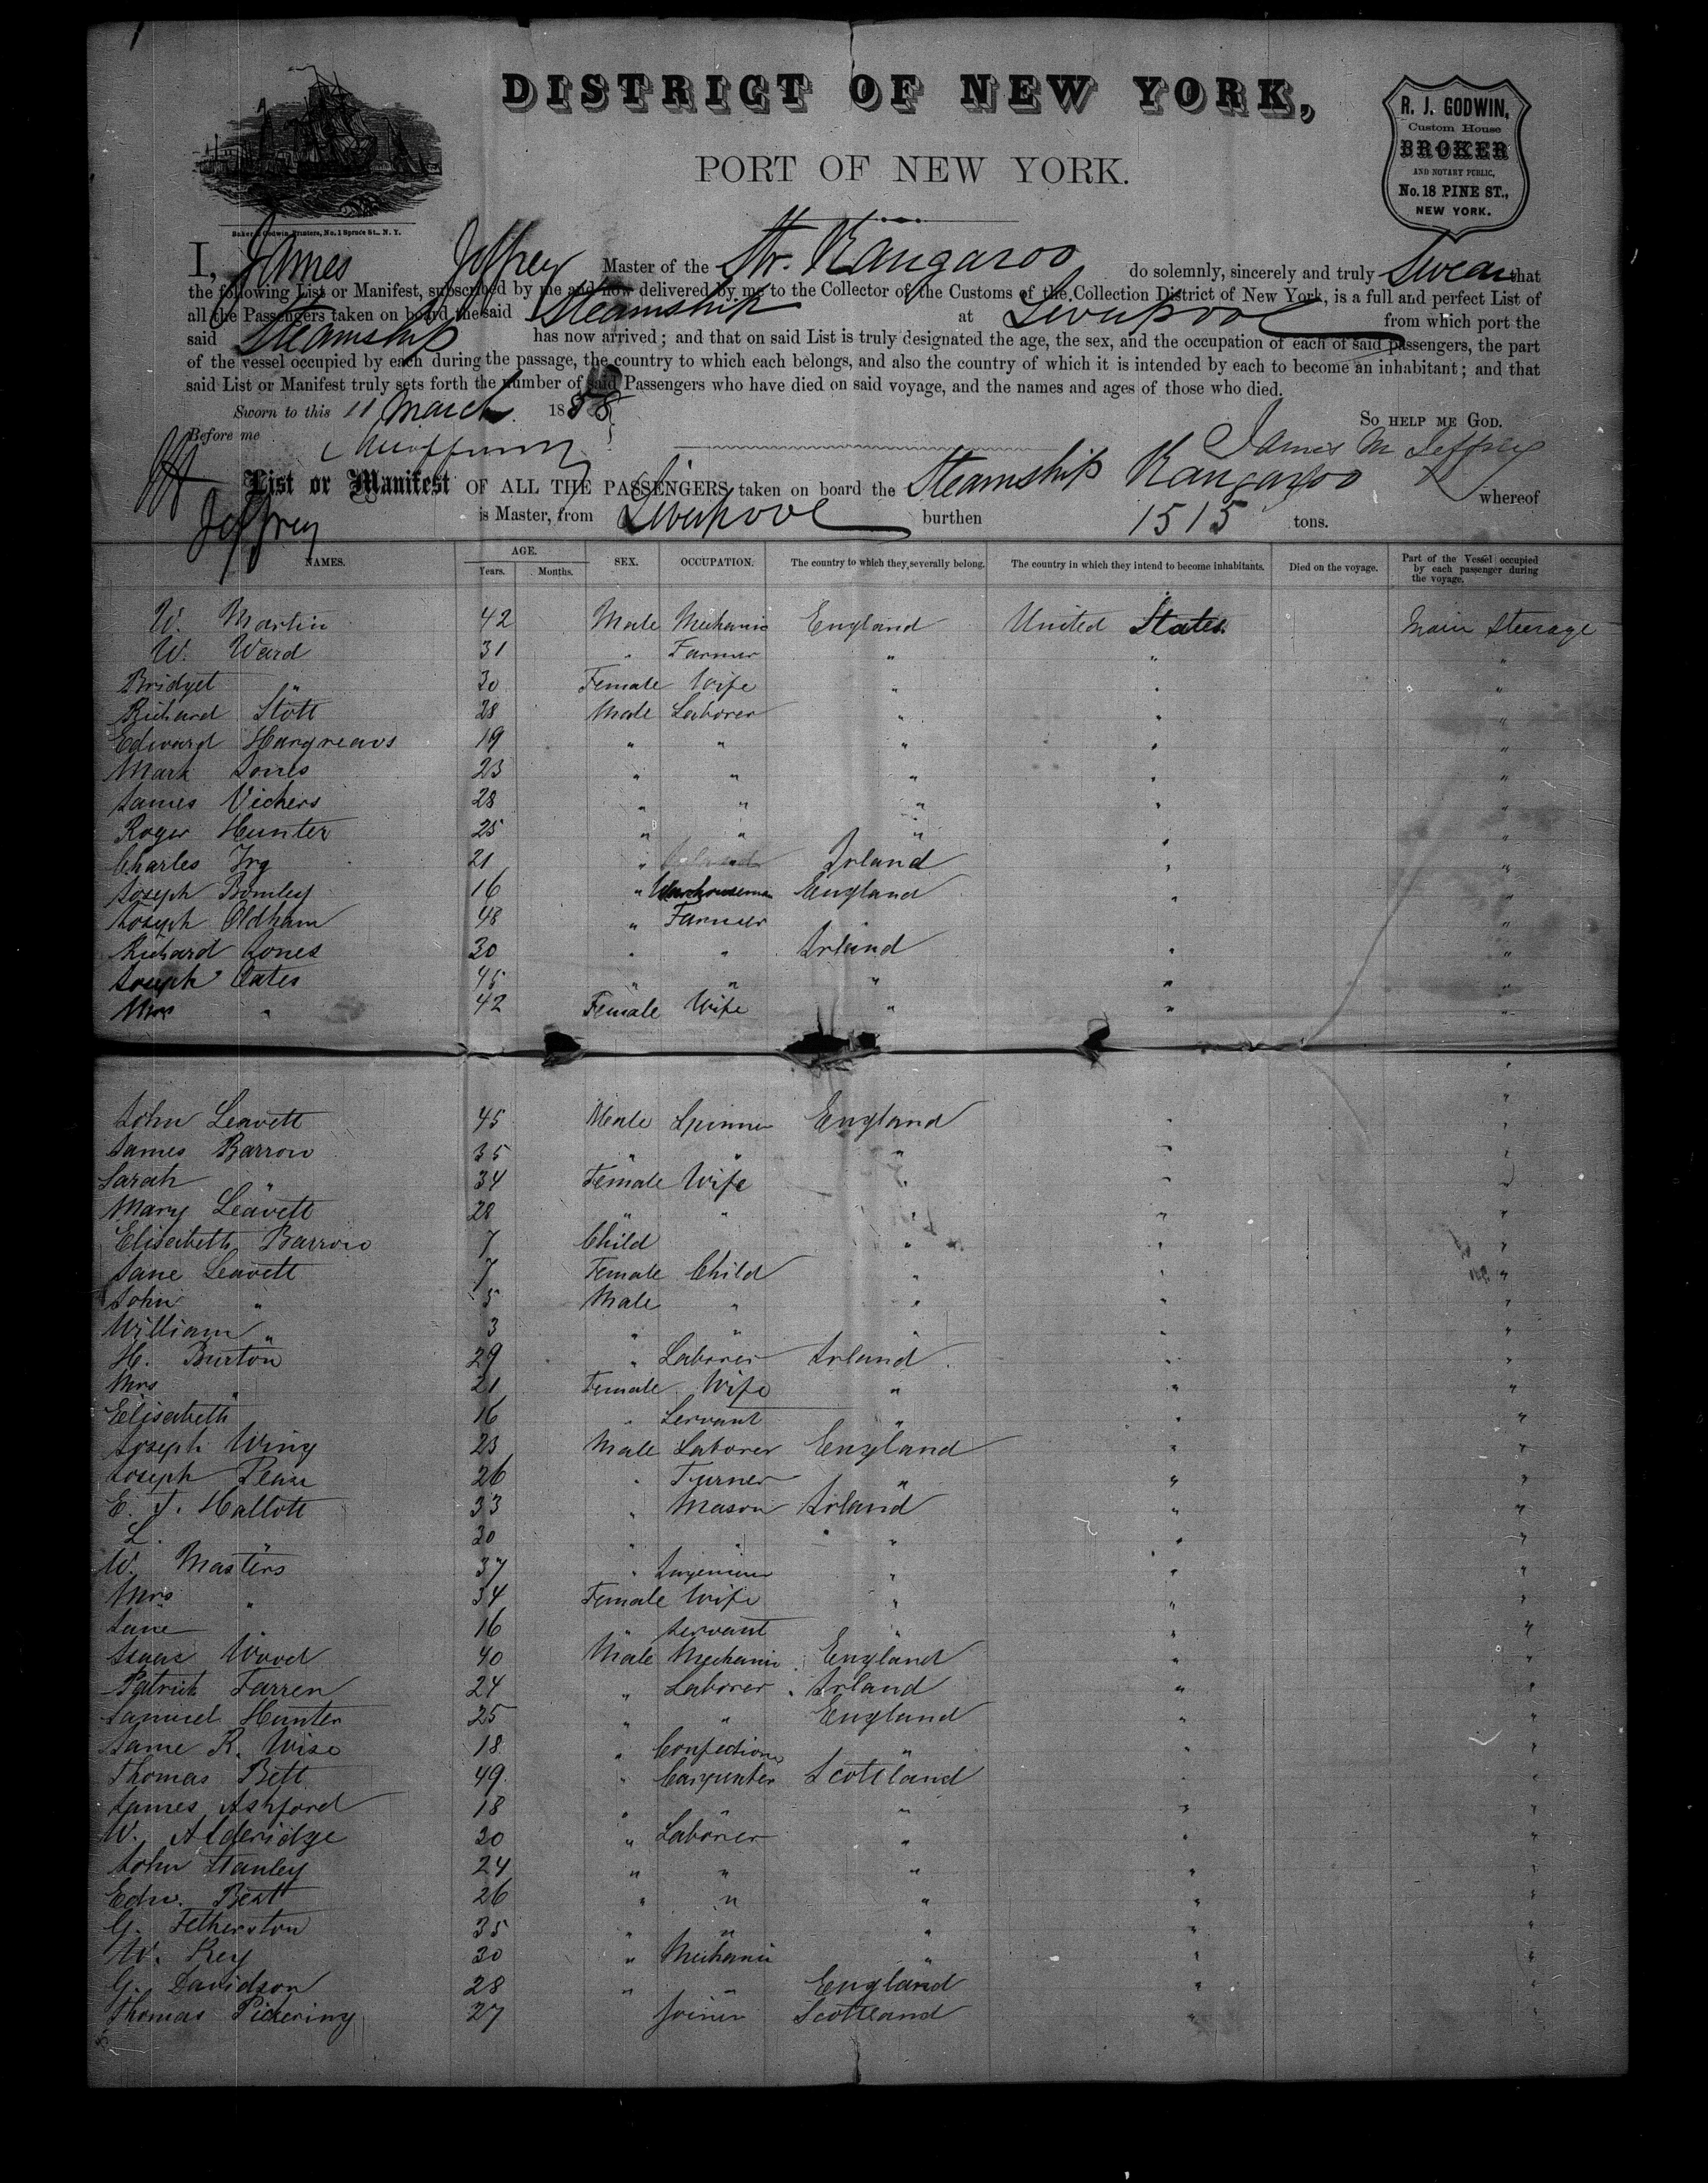 DISTRICT OF NEW YORK,
PORT OF NEW YORK.
R. J. GODWIN,
Custom House
BROKER
AND NOTARY PUBLIC,
No. 18 PINE ST.,
NEW YORK.
Baker & Godwin, Printers, No. 1 Spruce St., N. Y.
I, James Jeffrey Master of the Str. Kangaroo do solemnly, sincerely and truly Swear that
the following List or Manifest, subscribed by me and now delivered by me to the Collector of the Customs of the Collection District of New York, is a full and perfect List of
all the Passengers taken on board the said Steamship at Liverpool from which port the
said Steamship has now arrived; and that on said List is truly designated the age, the sex, and the occupation of each of said passengers, the part
of the vessel occupied by each during the passage, the country to which each belongs, and also the country of which it is intended by each to become an inhabitant; and that
said List or Manifest truly sets forth the number of said Passengers who have died on said voyage, and the names and ages of those who died.
Sworn to this 11 March 1858
SO HELP ME GOD.
Before me
James M Jeffrey
List or Manifest OF ALL THE PASSENGERS taken on board the Steamship Kangaroo whereof
Jeffrey is Master, from Liverpool burthen 1515 tons.
NAMES. AGE. Years. Months. SEX. OCCUPATION. The country to which they severally belong. The country in which they intend to become inhabitants. Died on the voyage. Part of the Vessel occupied by each passenger during the voyage.
W. Martin 42 Male Mechanic England United States Main Steerage
W. Ward 31 " Farmer " " "
Bridget " 30 Female Wife " " "
Richard Stott 28 Male Laborer " " "
Edward Hargreavs 19 " " " " "
Mark Jones 23 " " " " "
James Vickers 28 " " " " "
Roger Hunter 25 " " " " "
Charles Irg 21 " Irland " "
Joseph Bomley 16 " Warehouseman England " "
Joseph Oldham 48 " Farmer " "
Richard Jones 30 " " Irland " "
Joseph Oates 45 " " " " "
Mrs " 42 Female Wife " " "
John Leavett 45 Male Spinner England " "
James Barrow 35 " " " " "
Sarah " 34 Female Wife " " "
Mary Leavett 28 " " " " "
Elisabeth Barrow 7 Child " " "
Jane Leavett 7 Female Child " " "
John " 5 Male " " " "
William " 3 " " " " "
H. Burton 29 " Laborer Irland " "
Mrs " 21 Female Wife " " "
Elisabeth 16 " Servant " " "
Joseph Wing 23 Male Laborer England " "
Joseph Pean 26 " Turner " " "
E. J. Hallott 33 " Mason Irland " "
L. " 30 " " " " "
W. Masters 37 " Ingenieur " " "
Mrs " 34 Female Wife " " "
Jane " 16 " Servant " " "
Isaac Wood 40 Male Mechanic England " "
Patrick Farren 24 " Laborer Irland " "
Samuel Hunter 25 " " England " "
Jame R. Wise 18 " Confectioner " " "
Thomas Bett 49 " Carpenter Scottland " "
James Ashford 18 " " " " "
W. Alderidge 20 " Laborer " " "
John Stanley 24 " " " " "
Edw. Bestt 26 " " " " "
G. Fetherston 35 " " " " "
W. Key 30 " Mechanic " " "
G. Davidson 28 " " England " "
Thomas Pickering 27 Joiner Scottland " "